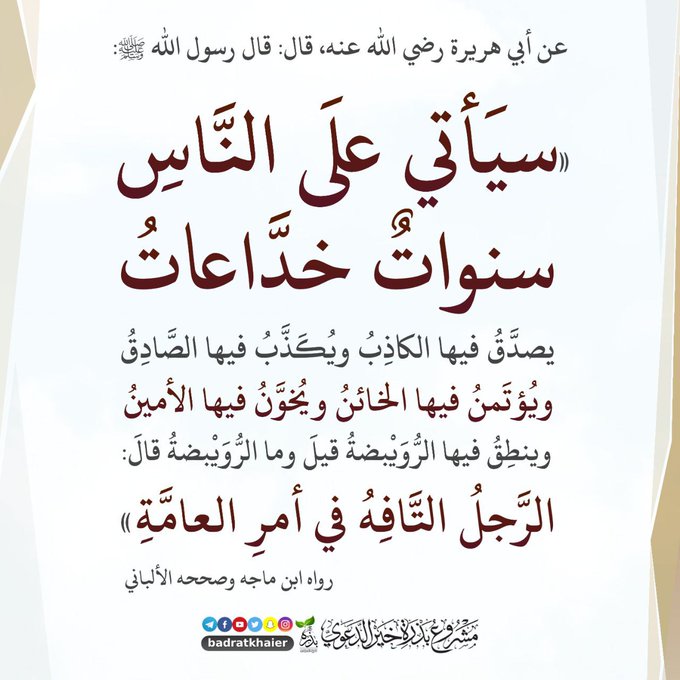 عن أبي هريرة رضي الله عنه، قال: قال رسول الله ﷺ:
«سيَأتي علَى النَّاسِ
سنواتٌ خدَّاعاتُ
يصدَّقُ فيها الكاذِبُ ويُكَذَّبُ فيها الصَّادِقُ
ويُؤتَمنُ فيها الخائنُ ويُخوَّنُ فيها الأمينُ
وينطِقُ فيها الرُّوَيْبضةُ قيلَ وما الرُّوَيْبضةُ قالَ:
الرَّجلُ التَّافِهُ في أمرِ العامَّةِ»
رواه ابن ماجه وصححه الألباني
مشروع بذرة خير الدعوي
badratkhaier